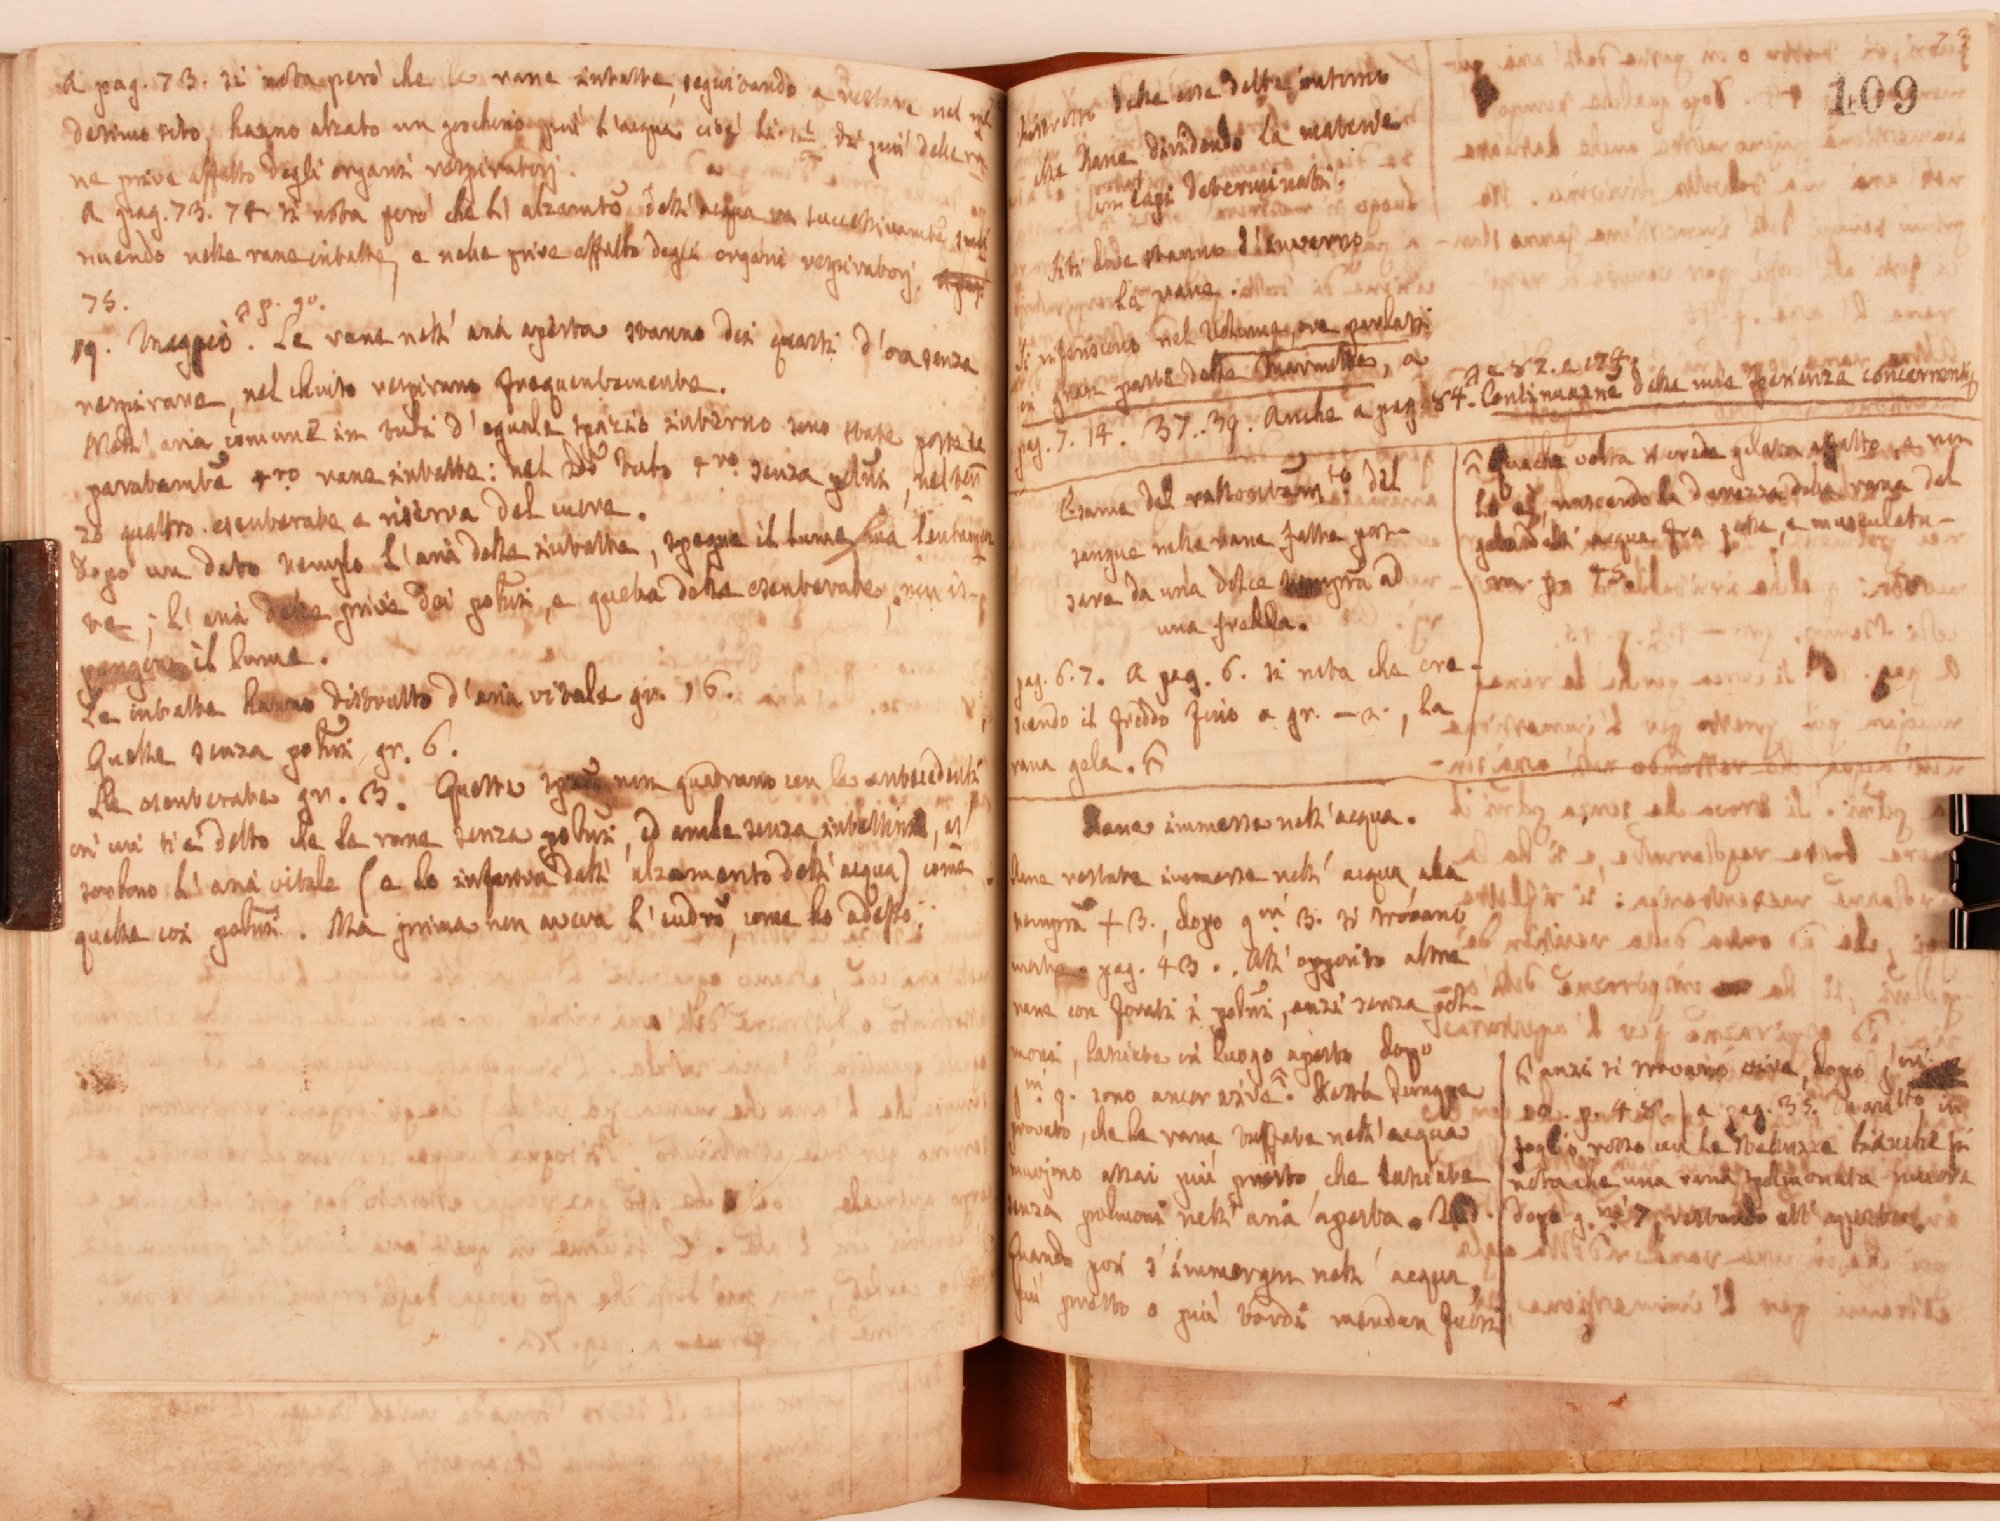 A pag. 73. si nota però che le rane intatte, seguitando a restare nel me
desimo sito, hanno alzato un pochino più l'acqua cioè li. 12 di più delle ra
ne prive affatto degli organi respiratorj.
A pag. 73. 74 si nota però che l'alzamto dell'acqua va successivamte
nuendo nelle rane intatte, e nelle prive affatto degli organi respiratorj.
75.
19. Maggio. A p. 90. Le rane nell'aria aperta stanno dei quarti d'ora senza
respirare, nel chiuso respirano frequentemente.
Nell'aria comune in tubi d'eguale spazio interno sono state poste se
paratamte 4ro rane intatte: nel 2do tubo 4ro senza polmi, nel ter
zo quattro esenterate a riserva del cuore.
Dopo un dato tempo l'aria delle intatte, spegne il lume
ve; l'aria delle prive dei polmi, e quella delle esenterate, non is-
pengere il lume.
Le intatte hanno distrutto d'aria vitale gr. 16.
Quelle senza polmi, gr. 6.
Le esenterate gr. 3. Queste non quadrano con le antecedenti
in cui si è detto che le rane senza polmi, ed anche senza, as
sorbono l'aria vitale (e lo inferiva dall'alzamento dell'acqua) come
quelle coi polmi. Ma prima non aveva l'eudro, come ho adesso.
109
delle ova delle
che Rane dividendo la materia
in capi determinati.
Siti dove stanno d'inverno
le rane.
Si riferiscono nel Volume, ove parlasi
in gran parte delle Marmotte, a
pag. 7. 14. 37. 39. Anche a pag. 84. A e 82. e 174. Continuazne delle mie sperienze concernenti
Esame del rallentamto del
sangue nelle rane fatte pas-
sare da una dolce tempra ad
una fredda.
pag. 6. 7. A pag. 6. si nota che cre-
scendo il freddo fino a gr. — 2., la
rana gela.
Qualche volta si crede gelata affatto, e non
lo è, nascendo la durezza della rana del
gelo dell'acqua fra pelle, e muscolatu-
ra. p. 45.
Rane immerse nell'acqua.
Rane restate immerse nell'acqua alla
tempra + 3., dopo gni 3. si trovano
morte. pag. 43. All'opposito altre
rane con forati i polmi, anzi senza pol-
moni, lasciate in luogo aperto dopo
gni 9. sono ancor vive. Resta dunque
provato, che le rane tuffate nell'acqua
muojono assai più presto che lasciate
senza polmoni nell'aria aperta.
Quando poi s'immergon nell'acqua,
più presto o più tardi mandan fuori
anzi si trovano vive, dopo gni
20. p. 48. A pag. 35. in
foglio rosso con le stellezze bianche si
nota che una rana spolmonata
dopo gni 7, restando all'aperto.